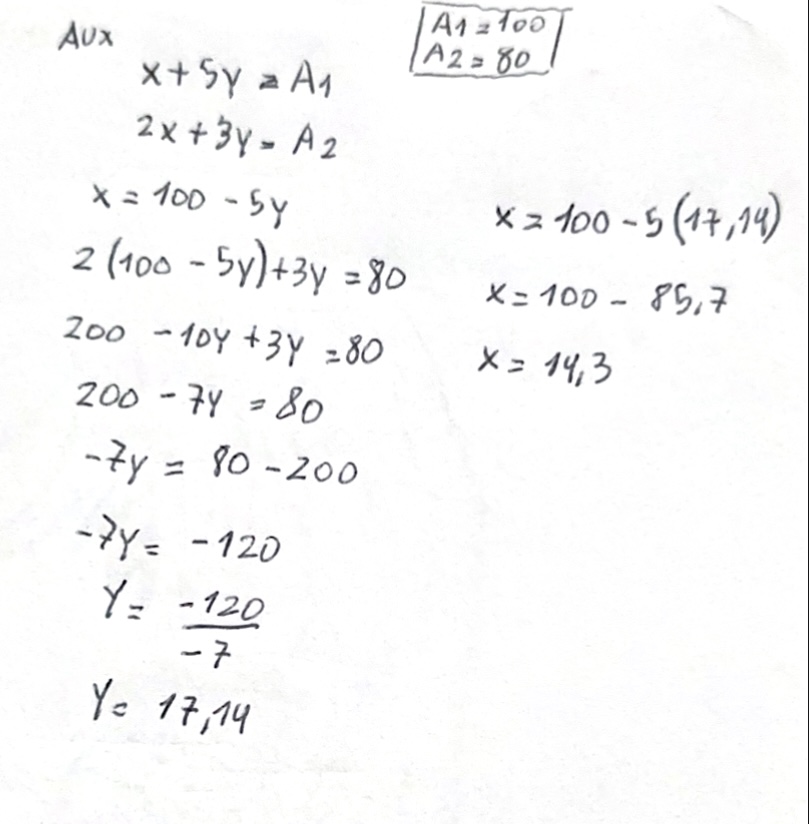 AUX
A1 = 100
A2 = 80
x + 5y = A1
2x + 3y = A2
x = 100 - 5y
2 (100 - 5y) + 3y = 80
200 - 10y + 3y = 80
200 - 7y = 80
-7y = 80 - 200
-7y = -120
y = -120
-7
y = 17,14
x = 100 - 5 (17,14)
x = 100 - 85,7
x = 14,3